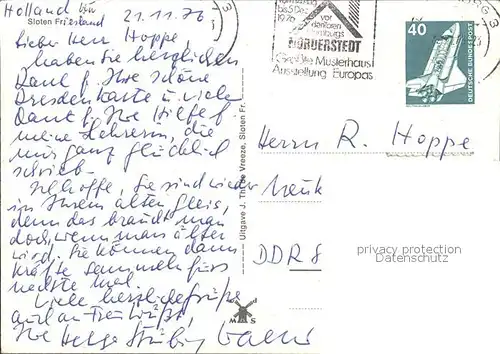 Holland
21.11.76
Sloten Friesland
Lieber Herr Hoppe
haben Sie herzlichen
Dank f. Ihre schöne
Dresdenkarte u. vielen
Dank f. Ihre Hilfe f.
meine Lehrerin, die
mir ganz glücklich
schrieb.
Ich hoffe, Sie sind wieder
in Ihrem alten Gleis,
denn das braucht man
doch, wenn man älter
wird. Sie können dann
Kräfte sammeln fürs
nächste Mal.
Viele herzliche Grüße
auch an Frau
Ihre Helga
Uitgave J. Th. de Vreeze, Sloten Fr.
M S
bis 5 Dez.
1976
vor
den Toren
Hamburgs
NORDERSTEDT
Größte Musterhaus
Ausstellung Europas
40
DEUTSCHE BUNDESPOST
Herrn R. Hoppe
DDR 8
privacy protection
Datenschutz